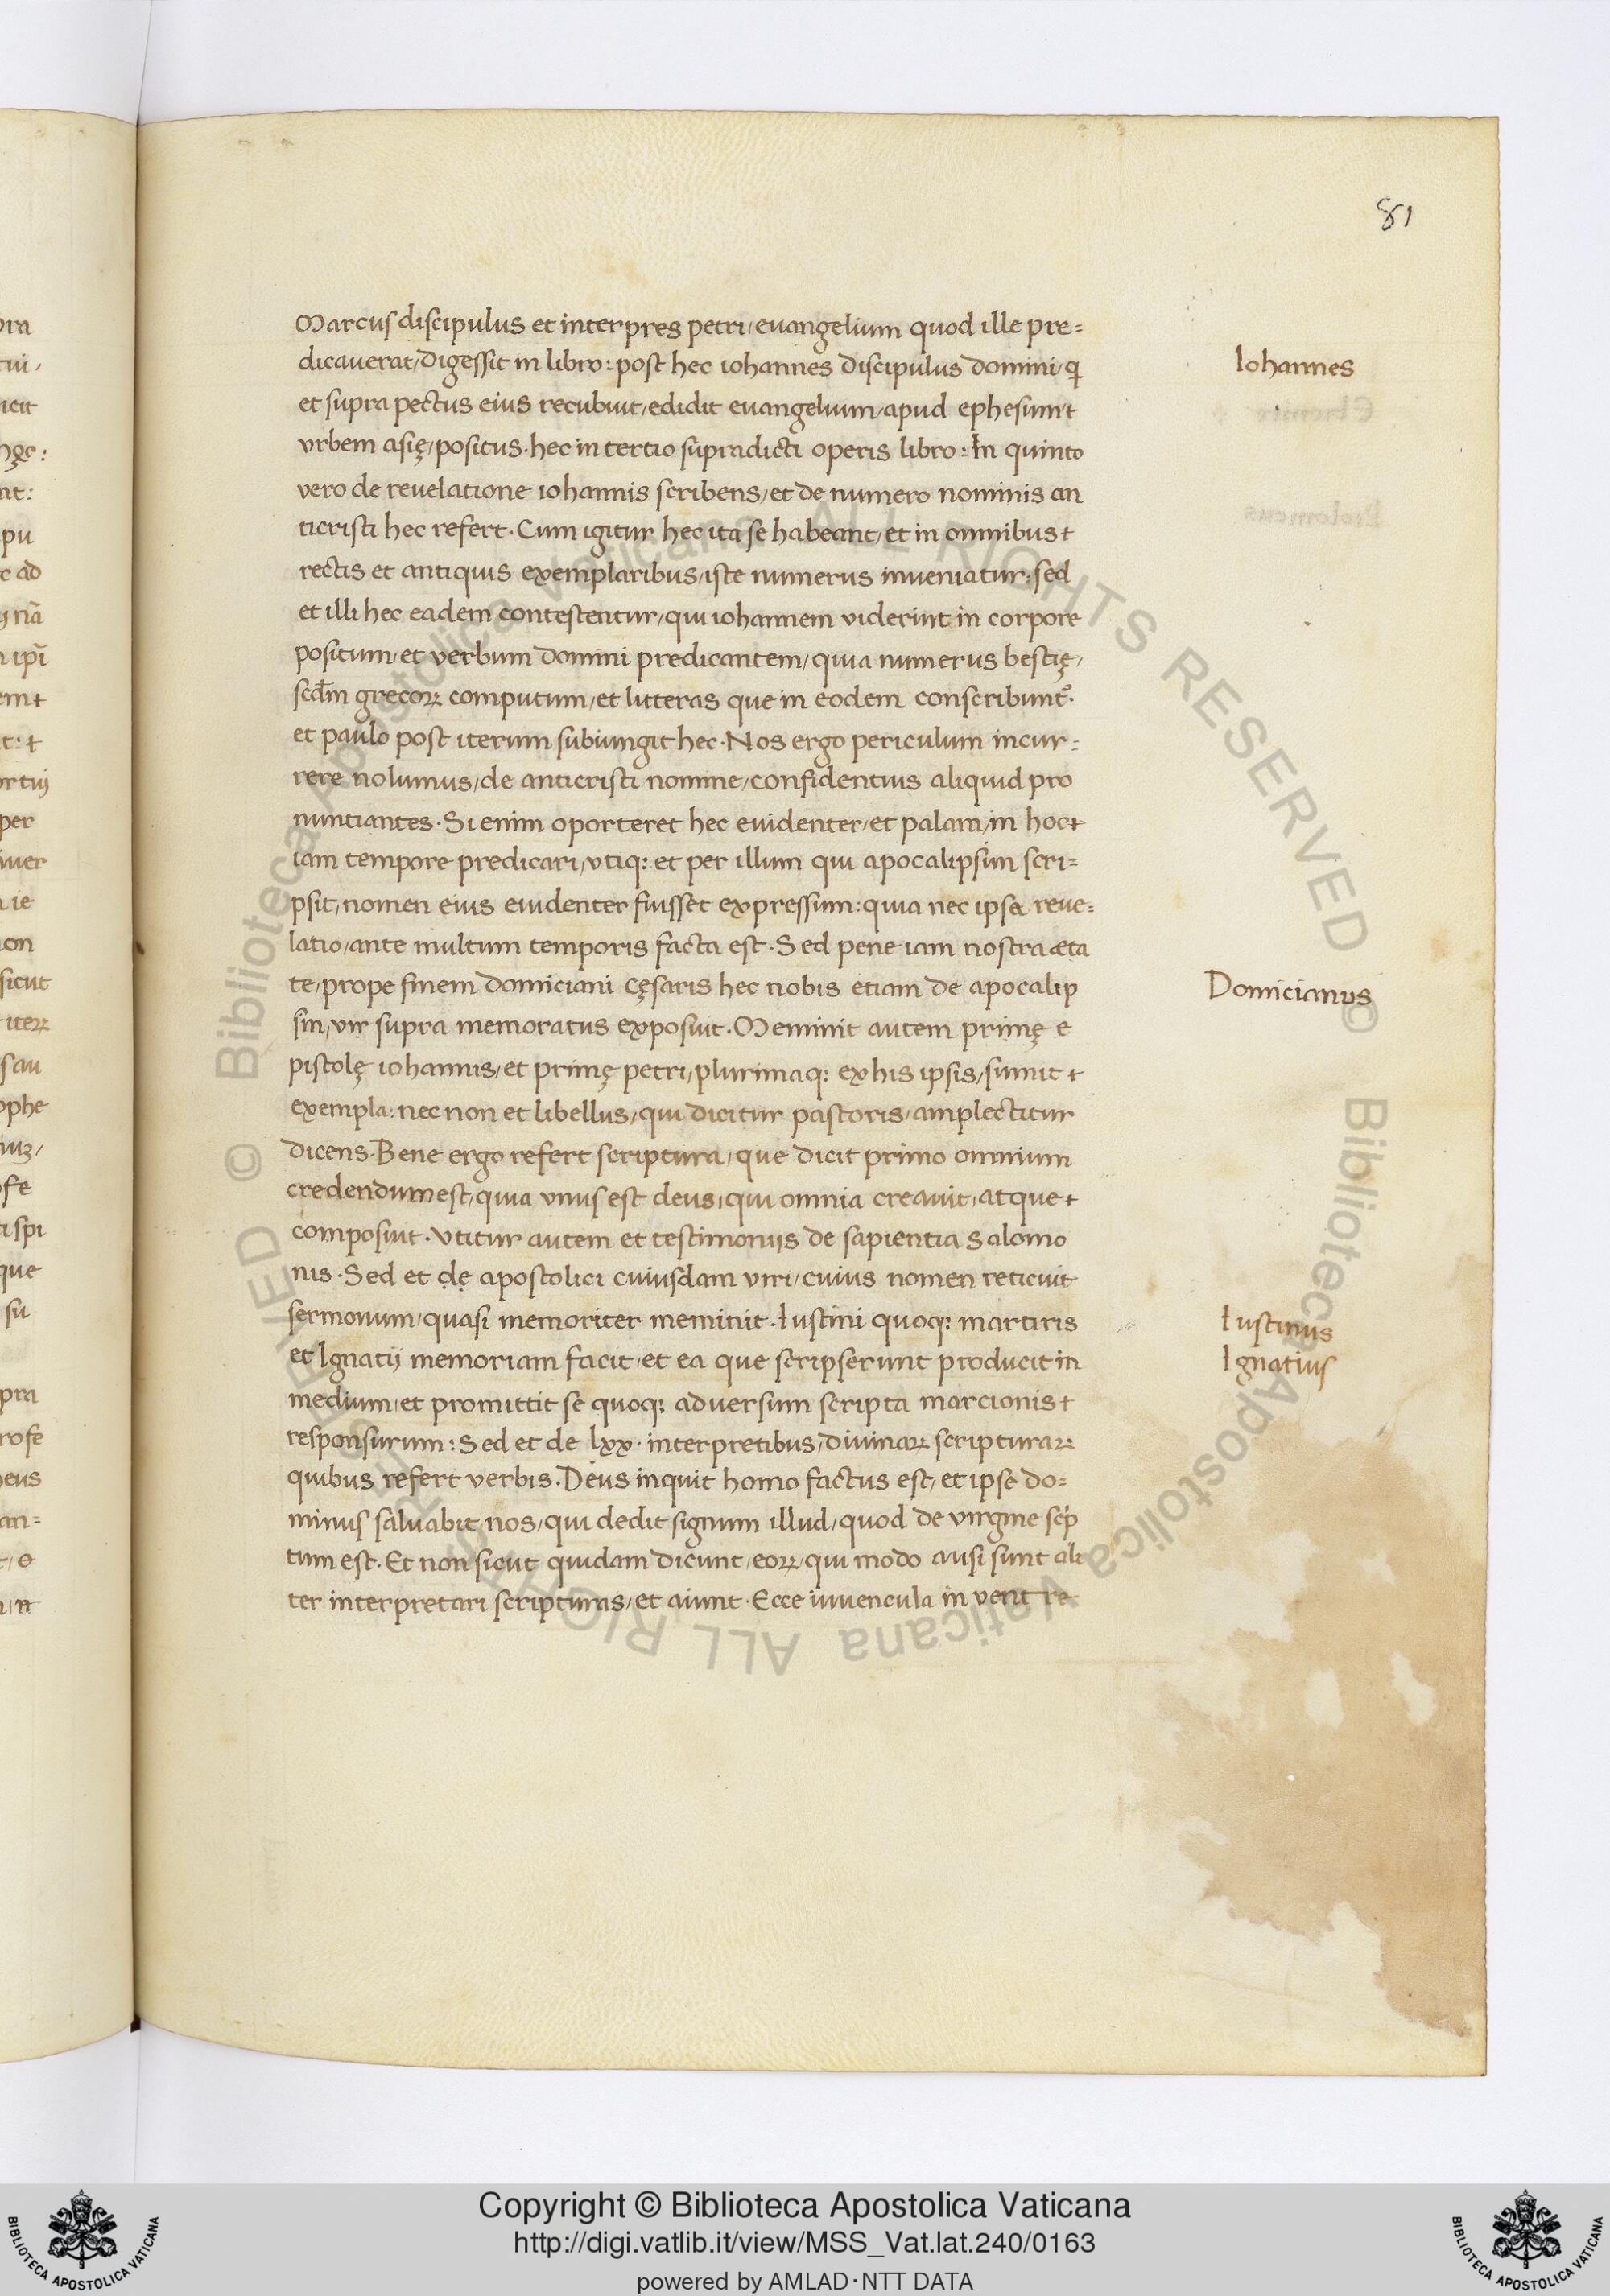 81
Marcus discipulus et interpres petri/euangelium quod ille pre=
dicauerat/digessit in libro: post hec iohannes discipulus domini/q̣
et supra pectus eius recubuit/edidit euangelium/apud ephesum/t
vrbem asię/positus· hec in tertio supradicti operis libro: In quinto
vero de reuelatione iohannis scribens/et de numero nominis an
ticristi hec refert· Cum igitur hec ita se habeant/et in omnibus t
rectis et antiquis exemplaribus/iste numerus inueniatur: sed
et illi hec eadem contestentur/qui iohannem viderint in corpore
positum/et verbum domini predicantem/quia numerus bestię/
scđm grecoꝝ computum/et litteras que in eodem conscribunt᷑·
et paulo post iterum subiungit hec· Nos ergo periculum incur=
rere nolumus/de anticristi nomine/confidentius aliquid pro
nuntiantes· Si enim oporteret hec euidenter/et palam/in hoc t
iam tempore predicari/vtiq: et per illum qui apocalipsim scri=
psit/nomen eius euidenter fuisset expressum: quia nec ipsa reue=
latio/ante multum temporis facta est· Sed pene iam nostra æta
te/prope finem domiciani cęsaris hec nobis etiam de apocalip
sin/vir supra memoratus exposuit· Meminit autem primę e
pistolę iohannis/et primę petri/plurimaq: ex his ipsis/sumit t
exempla: nec non et libellus/qui dicitur pastoris/amplectitur
dicens· Bene ergo refert scriptura/que dicit primo omnium
credendum est/quia vnus est deus/qui omnia creauit/atque t
composuit· Vtitur autem et testimoniis de sapientia Salomo
nis· Sed et dę apostolici cuiusdam viri/cuius nomen reticuit
sermonum/quasi memoriter meminit· Iustini quoq: martiris
et Ignatij memoriam facit/et ea que scripserunt producit in
medium/et promittit se quoq: aduersum scripta marcionis t
responsurum: Sed et de lxx· interpretibus/diuinaꝝ scripturaꝝ
quibus refert verbis· Deus inquit homo factus est/et ipse do=
minus saluabit nos/qui dedit signum illud/quod de virgine scṕ
tum est· Et non sicut quidam dicunt/eoꝝ/qui modo ausi sunt ali
ter interpretari scripturas/et aiunt· Ecce iuuencula in ventre
Iohannes
Domicianus
Iustinus
Ignatius
Copyright © Biblioteca Apostolica Vaticana
http://digi.vatlib.it/view/MSS_Vat.lat.240/0163
powered by AMLAD·NTT DATA
BIBLIOTECA APOSTOLICA VATICANA
BIBLIOTECA APOSTOLICA VATICANA
© Biblioteca Apostolica Vaticana ALL RIGHTS RESERVED
© Biblioteca Apostolica Vaticana ALL RIGHTS RESERVED